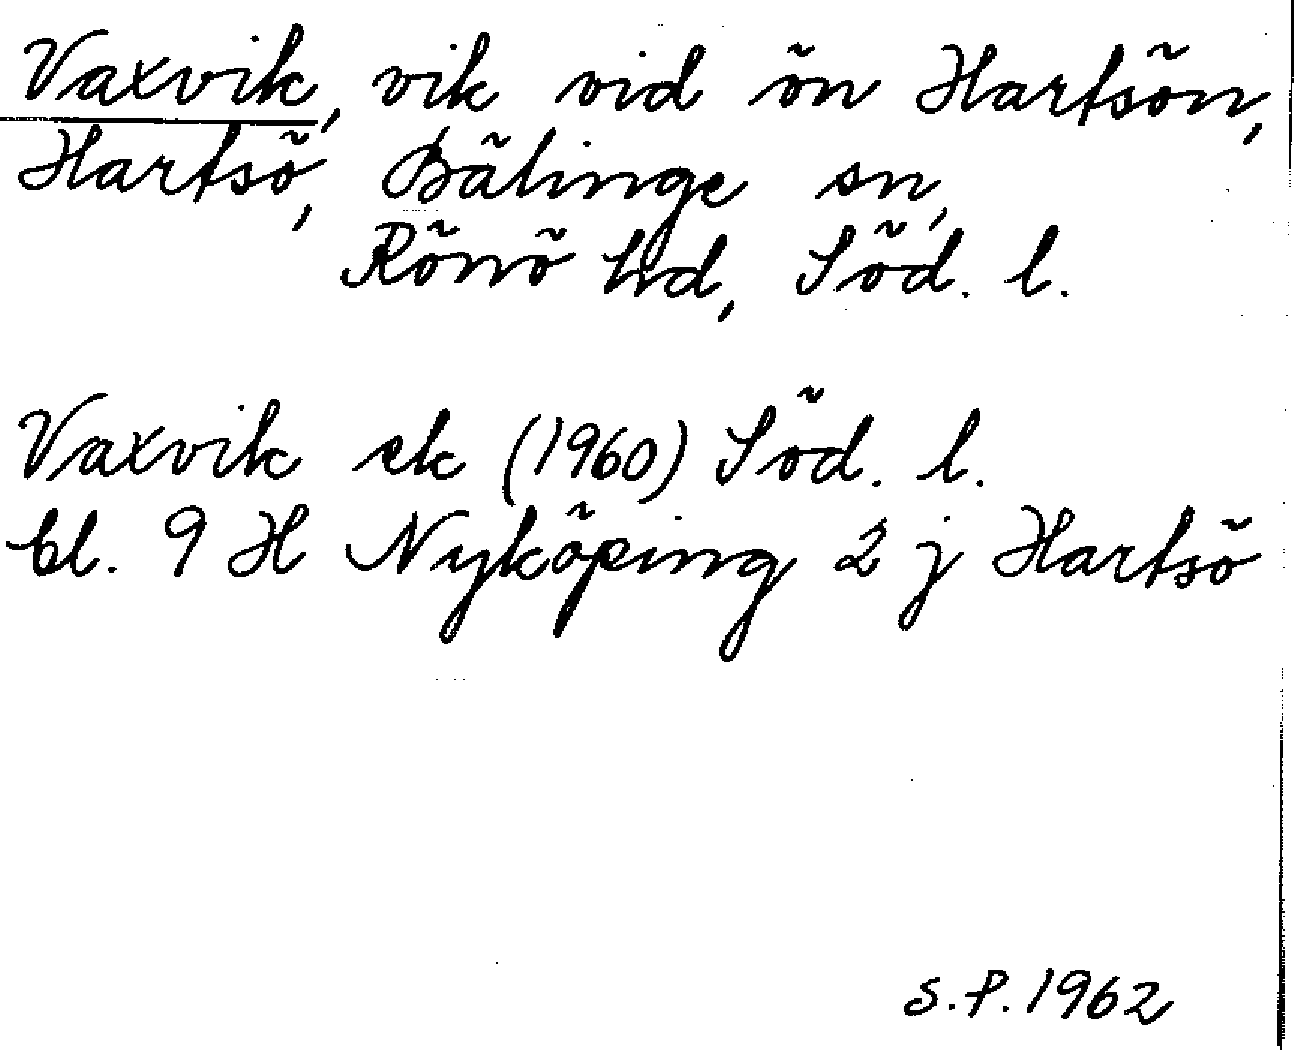 Vaxvik, vik vid ön Hartsön,
Hartsö, Bälinge sn,
Rönö hd, Söd. l.
Vaxvik ek (1960) Söd. l.
bl. 9 H Nyköping 2 j Hartsö
S.P. 1962